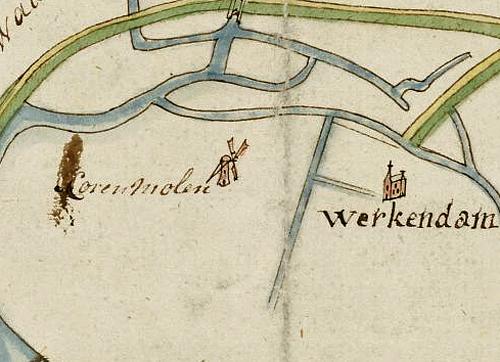 Korenmolen
Werkendam